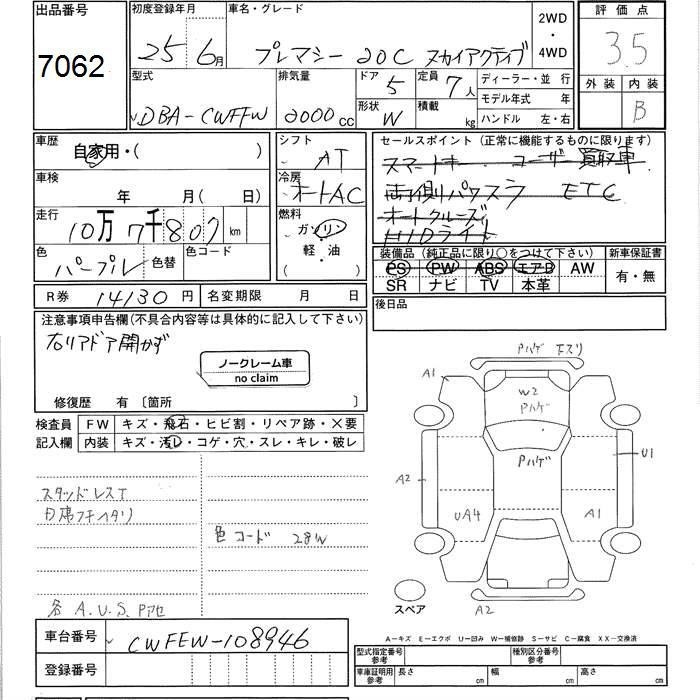 出品番号
7062
初度登録年月
25 6月
車名・グレード
プレマシー 20C スカイアクティブ
2WD
・
4WD
評価点
3.5
外装 内装
B
型式
DBA-CWFFW
排気量
2000cc
ドア
5
定員
7人
形状
W
積載
kg
ディーラー・並行
モデル年式 年
ハンドル 左・右
車歴
自家用・( )
車検
年 月( 日)
走行
10万7千807km
色
パープル
色替
色コード
シフト
AT
冷房
オートAC
燃料
ガソリン
・
軽・油
・( )
セールスポイント (正常に機能するものに限ります)
スマートキー ユーザー買取車
両側パワスラ ETC
オートクルーズ
HIDライト
装備品(純正品に限り○をつけて下さい)
PS PW ABS エアB AW
SR ナビ TV 本革
新車保証書
有・無
後日品
R券 14130円
名変期限 月 日
注意事項申告欄(不具合内容等は具体的に記入して下さい)
右リアドア開かず
ノークレーム車
no claim
修復歴 有〔箇所 〕
検査員
記入欄
FW キズ・飛石・ヒビ割・リペア跡・×要
内装 キズ・汚レ・コゲ・穴・スレ・キレ・破レ
スタッドレスT
色コード 28W
各 A.U.S. Pアセ
Pハゲ 下スリ
A1
W2
Pハゲ
Pハゲ
A2
U1
UA4
A1
スペア
A2
車台番号
CWFEW-108946
登録番号
A‐キズ E‐エクボ U‐凹み W‐補修跡 S‐サビ C‐腐食 XX‐交換済
型式指定番号
参考
種別区分番号
参考
車庫証明用
参考
長さ cm
幅 cm
高さ cm